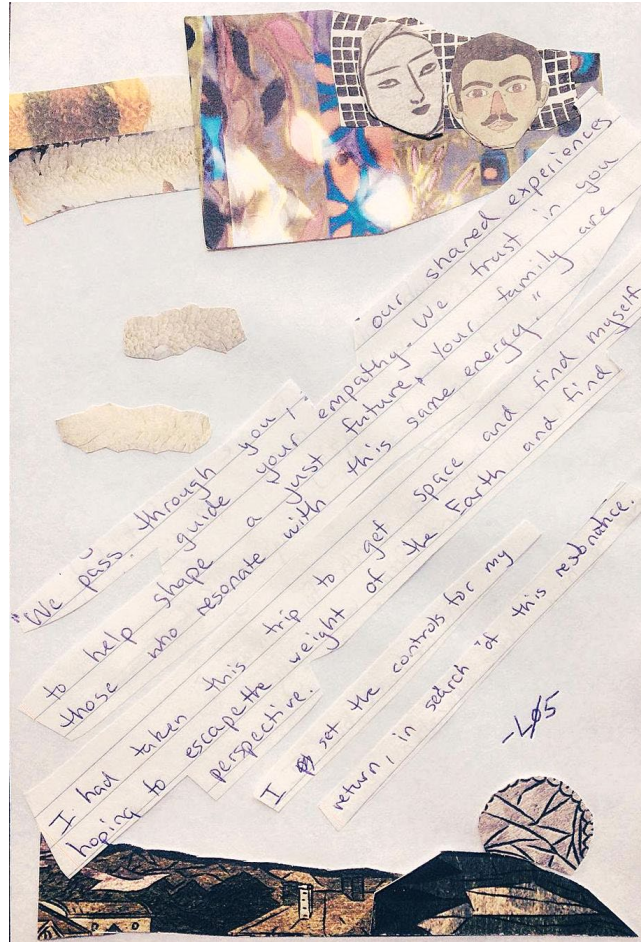 "We pass through you, our shared experiences
guide your empathy. We trust in you
to help shape a just future. Your family are
those who resonate with this same energy."
I had taken this trip to get space and find myself
hoping to escapethe weight of the Earth and find
perspective.
I set the controls for my
return, in search of this resonance.
-LØ5